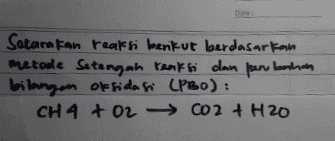 Date:
Setarakan reaksi berikut berdasarkan
metode Setengah reaksi dan perubahan
bilangan oksidasi (PBO) :
CH4 + O2 → CO2 + H2O